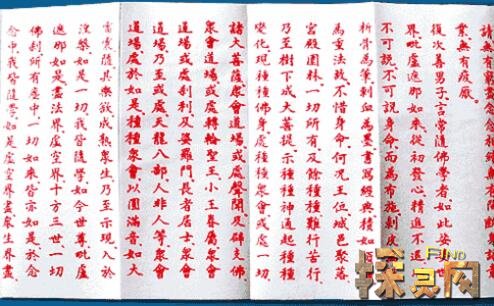 請無有窮盡念念相續無有間斷
業無有疲厭
復次善男子言常隨佛學者如此娑婆世
界毗盧遮那如來從初發心精進不退
不可說不可說身命而為布施剝皮
析骨為筆刺血為墨書寫經典積如
為重法故不惜身命何況王位城邑聚落
宮殿園林一切所有及餘種種難行苦行
乃至樹下成大菩提示種種神通起種種
變化現種種佛身處種種眾會或處一切
諸大菩薩眾會道場或處聲聞及辟支佛
眾會道場或處轉輪聖王小王眷屬眾會
道場或處剎利及婆羅門長者居士眾會
道場乃至或處天龍八部人非人等眾會
道場處於如是種種眾會以圓滿音如大
雷震隨其樂欲成熟眾生乃至示現入於
涅槃如是一切我皆隨學如今世尊毗盧
遮那如是盡法界虛空界十方三世一切
佛剎所有塵中一切如來皆亦如是於念
念中我皆隨學如是虛空界盡眾生界盡
FIND
探网